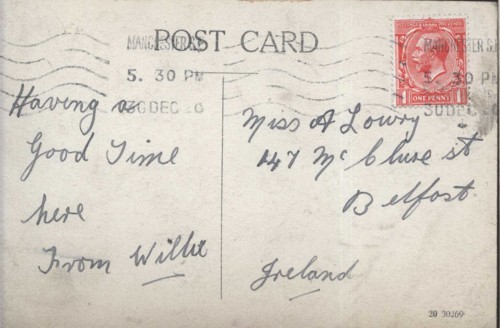 POST CARD
MANCHESTER S.E
5. 30 PM
30 DEC
MANCHESTER S.E
5. 30 PM
30 DEC
1 ONE PENNY 1
Having a
Good Time
here
From Willie
Miss A Lowry
147 Mc Clure st
Belfast
Ireland
20 30269